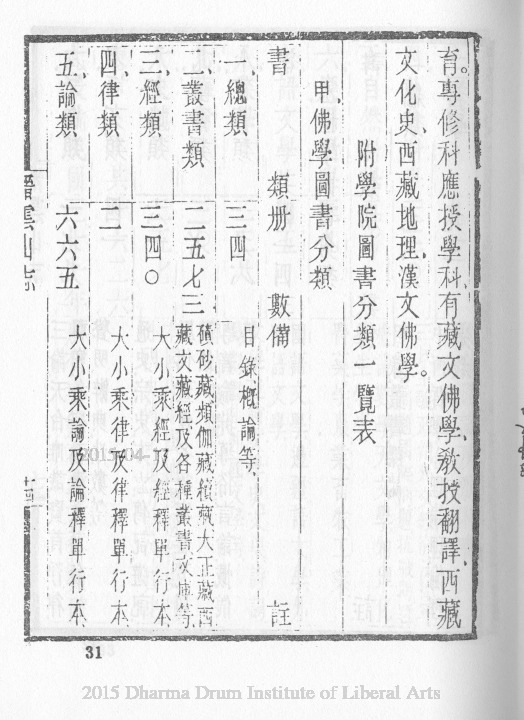 育。專修科應授學科、有藏文佛學、敎授翻譯、西藏
文化史、西藏地理、漢文佛學。
附學院圖書分類一覽表
甲、佛學圖書分類
書 類 册 數 備 註
一、總類 三四 目錄、概論等、
二、叢書類 二五七三 磧砂藏頻伽藏續藏大正藏西
藏文藏經及各種叢書文庫等、
三、經類 三四〇 大小乘經及經釋單行本、
四、律類 二 大小乘律及律釋單行本、
五、論類 六六五 大小乘論及論釋單行本、
縉雲山志
十四
31
2015 Dharma Drum Institute of Liberal Arts